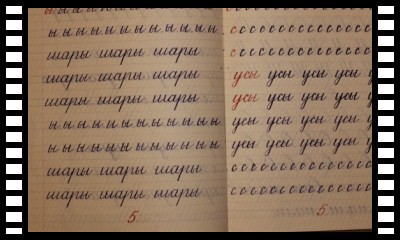 ы ы ы ы ы ы ы ы ы ы ы
ы ы ы ы ы ы ы ы ы ы ы
шары шары шары
шары шары шары
шары шары шары
ы ы ы ы ы ы ы ы ы ы ы ы
ы ы ы ы ы ы ы ы ы ы ы ы
шары шары шары
шары шары шары
5
с с с с с с с с с с с с с
с с с с с с с с с с с с с
с с с с с с с с с с с с с
усы усы усы усы
усы усы усы усы
усы усы усы усы
усы усы усы усы
с с с с с с с с с с с с с
с с с с с с с с с с с с с
5